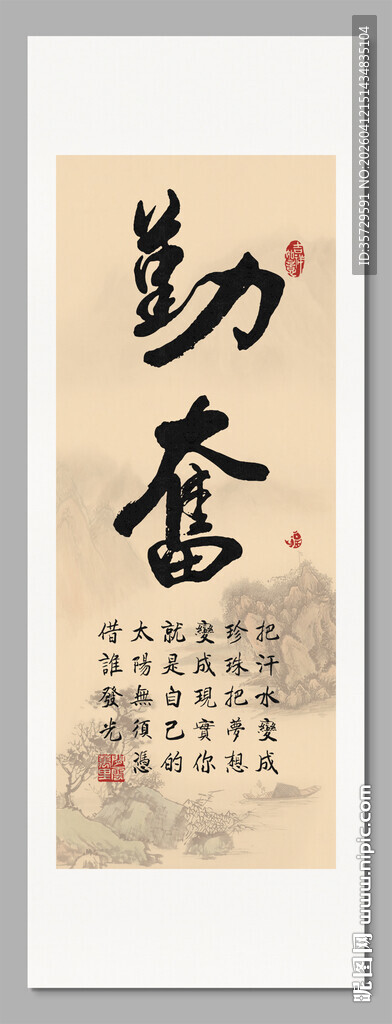 勤奮
把汗水變成
珍珠把夢想
變成現實你
就是自己的
太陽無須憑
借誰發光
ID:35729591 NO:20260412151434835104
昵图网 www.nipic.com